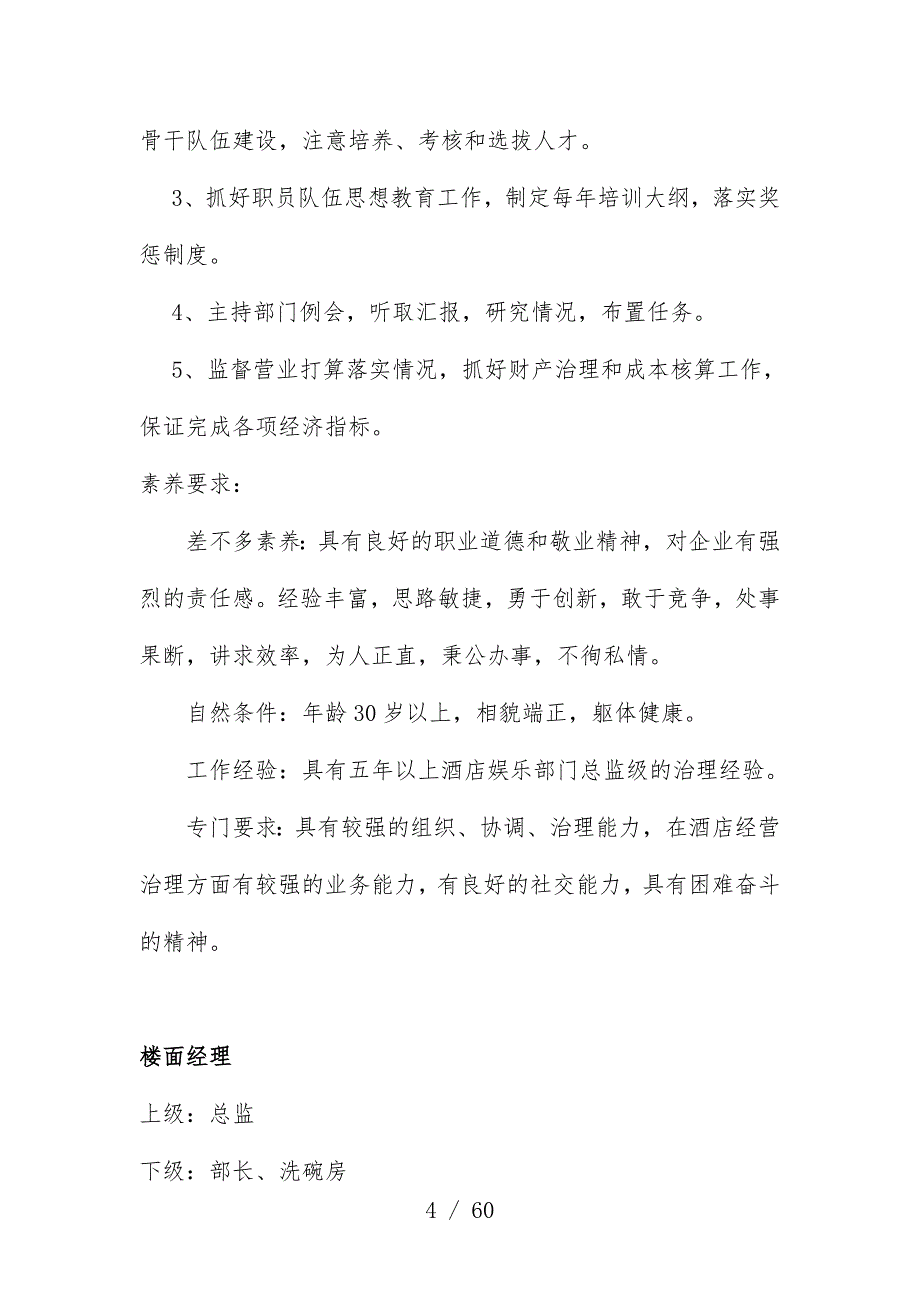 骨干队伍建设，注意培养、考核和选拔人才。
3、抓好职员队伍思想教育工作，制定每年培训大纲，落实奖
惩制度。
4、主持部门例会，听取汇报，研究情况，布置任务。
5、监督营业打算落实情况，抓好财产治理和成本核算工作，
保证完成各项经济指标。
素养要求：
差不多素养：具有良好的职业道德和敬业精神，对企业有强
烈的责任感。经验丰富，思路敏捷，勇于创新，敢于竞争，处事
果断，讲求效率，为人正直，秉公办事，不徇私情。
自然条件：年龄 30 岁以上，相貌端正，躯体健康。
工作经验：具有五年以上酒店娱乐部门总监级的治理经验。
专门要求：具有较强的组织、协调、治理能力，在酒店经营
治理方面有较强的业务能力，有良好的社交能力，具有困难奋斗
的精神。
楼面经理
上级：总监
下级：部长、洗碗房
4 / 60